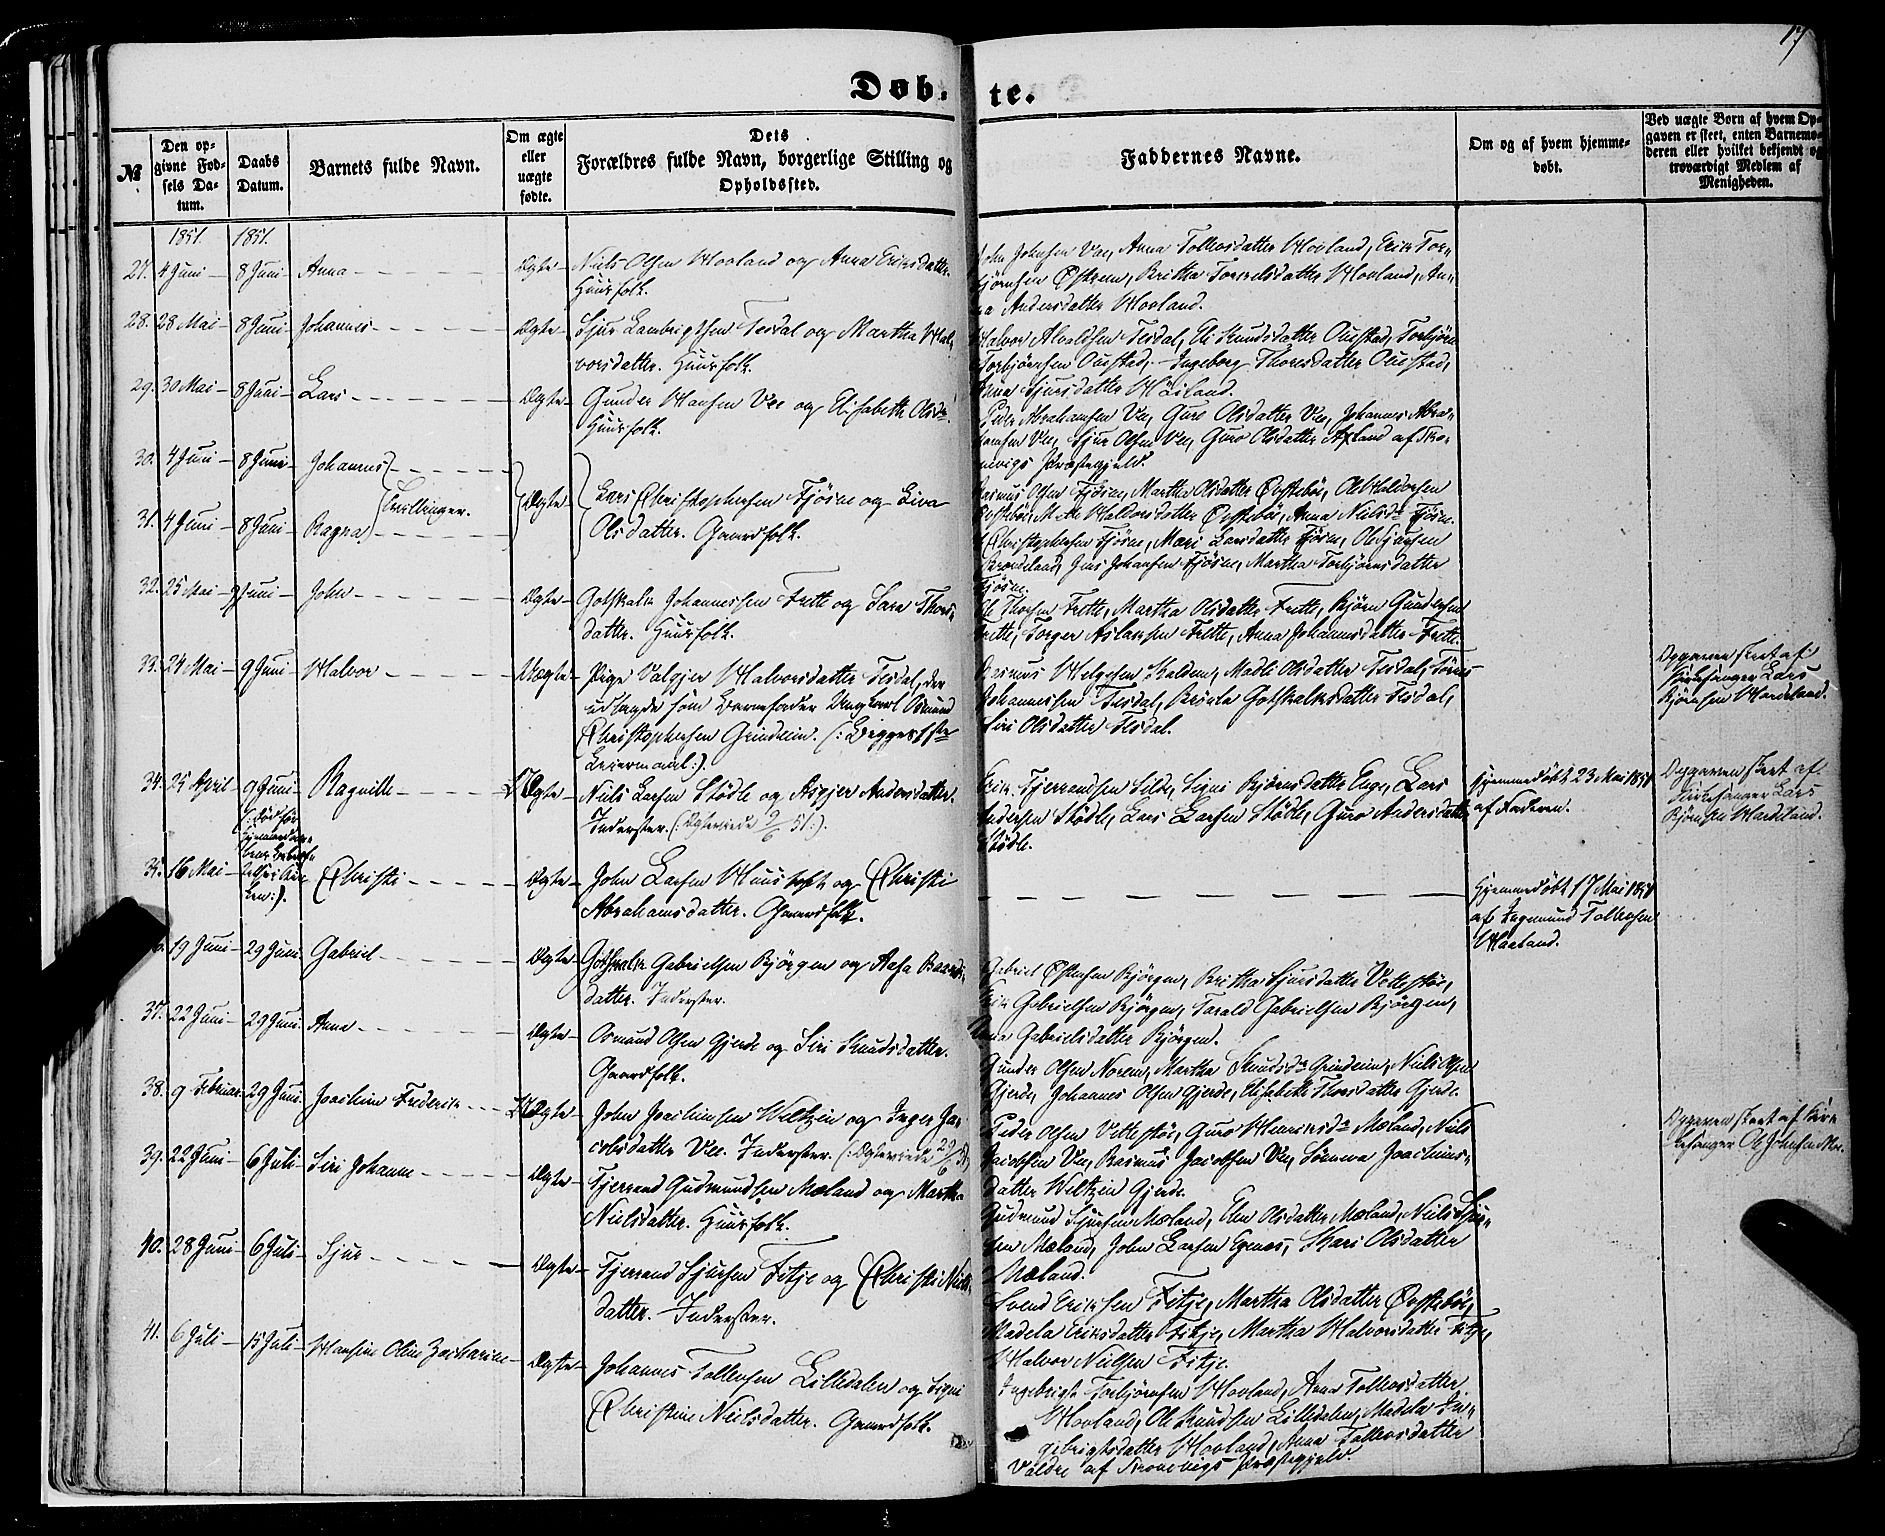 17
Døb-
te.
№
Den op-
givne Fød-
sels Da-
tum.
Daabs
Datum.
Barnets fulde Navn.
Om ægte
eller
uægte
fødte.
Dets
Forældres fulde Navn, borgerlige Stilling og
Opholdssted.
Faddernes Navne.
Om og af hvem hjemme-
døbt.
Ved uægte Børn af hvem Op-
gaven er skeet, enten Barnemo-
deren eller hvilket bekjendt og
troværdigt Medlem af
Menigheden.
1851. 1851.
27. 4 Juni 8 Juni Anna Ægte Niels Olsen Hovland og Anna Eriksdatter.
Huusfolk.
John Johnsen Vee, Anna Tollevsdatter Hovland, Erik Tor-
bjørnsen Østrem, Britha Torkelsdatter Hovland, An-
na Andersdatter Hovland.
28. 28 Mai 8 Juni Johannes Ægte Sjur Lambrigtsen Tesdal og Martha Hal-
vorsdatter. Huusfolk.
Halvor Alvaldsen Tesdal, Eli Knudsdatter Oustad, Torbjørn
Torbjørnsen Oustad, Ingeborg Thoresdatter Oustad,
Anna Sjursdatter Høiland.
29. 30 Mai 8 Juni Lars Ægte Gunder Hansen Vee og Elisabeth Olsdr.
Huusfolk.
Peder Abrahamsen Vee, Guro Olsdatter Vee, Johannes Abra-
hamsen Vee, Sjur Olsen Vee, Guro Olsdatter Axland af Sko-
nevigs Præstegjeld.
30. 4 Juni 8 Juni Johannes
Tvillinger.
31. 4 Juni 8 Juni Ragna
Ægte Lars Christophersen Fjøsne og Siva
Olsdatter. Gaardfolk.
Rasmus Olsen Fjøsne, Martha Olsdatter Øvstebø, Ole Halvorsen
Øvstebø, Halvorsdatter Øvstebø, Anna Nielsdr Fjøsne.
Christophersen Fjøsne, Mari Larsdatter Fjøsne, Ole Jansen
Johansen Fjøsne, Martha Torbjørnsdatter
Fjøsne.
32. 25 Mai 9 Juni John Ægte Gotskalk Johannessen Frette og Sara Thors-
datter. Huusfolk.
Ole Thorsen Frette, Martha Olsdatter Frette, Bjørn Gundersen
Frette, Torger Aslaksen Frette, Anna Johannesdatter Frette.
33. 24 Mai 9 Juni Halvor Uægte Pige Valgjer Halvorsdatter Tesdal, der
udlagde som Barnefader Ungkarl Osmund
Christophersen Grindeim. (: Begges 1ste
Leiermaal:).
Rasmus Helgesen Kaldem, Madli Olsdatter Tesdal,
Johannessen Tesdal, Gotskalksdatter Tesdal,
Siri Olsdatter Tesdal.
Opgaven skeet af
Kirkesanger Lars
Bjørnsen Hardeland.
34. 25 April 9 Juni Ragnilde Uægte Niels Larsen Stødle og Asgjer Andersdatter.
Inderster. (: Ægteviede 9/6 51:).
Erik Tjerrandsen Silde, Signi Bjørnsdatter Enge, Lars
Andersen Stødle, Lars Larsen Stødle, Guro Andersdatter
Stødle.
Hjemmedøbt 23 Mai 1851
af Faderen.
Opgaven skeet af
Kirkesanger Lars
Bjørnsen Hardeland.
35. 16 Mai (: død før
Christi Ægte John Larsen Huustoft og Christi
Abrahamsdatter. Gaardfolk.
Hjemmedøbt 17 Mai 1851
af Ingemund Tollevsen
Hovland.
36. 19 Juni 29 Juni Gabriel Ægte Gotskalk Gabrielsen Bjørgen og Aasa Baards-
datter. Inderster.
Gabriel Østensen Bjørgen, Britha Sjursdatter Vettestøe,
Erik Gabrielsen Bjørgen, Tarald Gabrielsen Bjørgen,
Anna Gabrielsdatter Bjørgen.
37. 22 Juni 29 Juni Anna Ægte Osmund Olsen Gjerde og Siri Knudsdatter.
Gaardfolk.
Gunder Olsen Norem, Martha Knudsdr Grindeim, Niels Olsen
Gjerde, Johannes Olsen Gjerde, Elisabeth Thorsdatter Gjerde.
38. 9 Februar 29 Juni Joachim Frederik Uægte John Joachimsen Weltzin og Inger Ja-
cobsdatter Vee. Inderster. (: Ægteviede 29/6 51)
Peder Olsen Vettestøe, Guro Henriksdr Mæland, Niels
Jacobsen Vee, Rasmus Jacobsen Vee, Sønneva Joachims-
datter Weltzin Gjerde.
Opgaven skeet af Kirk-
kesanger Ole Johnsen
39. 22 Juni 6 Juli Siri Johanne Ægte Tjerrand Gudmundsen Mæland og Martha
Nielsdatter. Huusfolk.
Gudmund Sjursen Mæland, Elen Olsdatter Mæland, Niels Sjur-
sen Mæland, John Larsen Egenes, Kari Olsdatter
Mæland.
40. 28 Juni 6 Juli Sjur Ægte Tjerrand Sjursen Fitje og Christi Niels-
datter. Inderster.
Svend Eriksen Fitje, Martha Olsdatter Øvstebø,
Madela Eriksdatter Fitje, Martha Halvorsdatter Fitje,
Halvor Nielsen Fitje.
41. 6 Juli 15 Juli Hansine Oline Zacharine Ægte Johannes Tollevsen Lilledalen og Signi
Christine Nielsdatter. Gaardfolk.
Ingebrigt Torbjørnsen Hovland, Anna Tollevsdatter
Hovland, Ole Knudsen Lilledalen, Madele In-
gebrigtsdatter Hovland, Anna Tollevsdatter
Valdre af Skonevigs Præstegjeld.